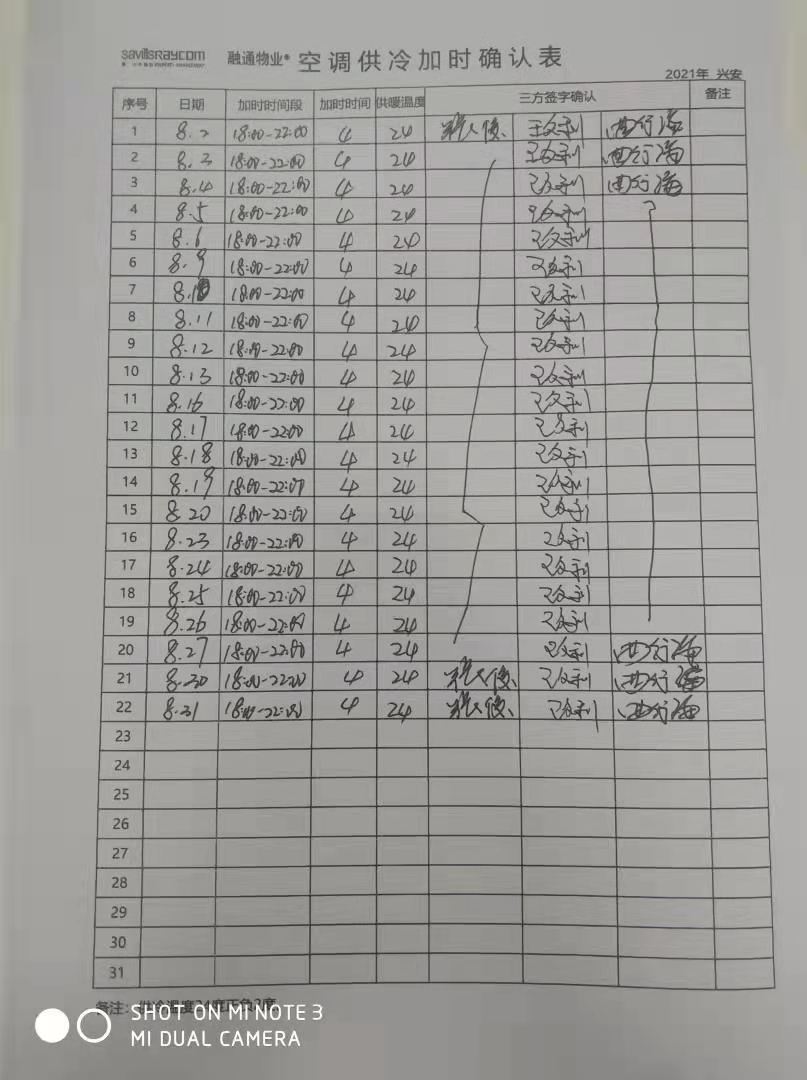 savillsRaycom 融通物业® 空调供冷加时确认表
2021年 兴安
序号 日期 加时时间段 加时时间 供暖温度 三方签字确认 备注
1 8.2 18:00-22:00 4 24
2 8.3 18:00-22:00 4 24
3 8.4 18:00-22:00 4 24
4 8.5 18:00-22:00 4 24
5 8.6 18:00-22:00 4 24
6 8.9 18:00-22:00 4 24
7 8.10 18:00-22:00 4 24
8 8.11 18:00-22:00 4 24
9 8.12 18:00-22:00 4 24
10 8.13 18:00-22:00 4 24
11 8.16 18:00-22:00 4 24
12 8.17 18:00-22:00 4 24
13 8.18 18:00-22:00 4 24
14 8.19 18:00-22:00 4 24
15 8.20 18:00-22:00 4 24
16 8.23 18:00-22:00 4 24
17 8.24 18:00-22:00 4 24
18 8.25 18:00-22:00 4 24
19 8.26 18:00-22:00 4 24
20 8.27 18:00-22:00 4 24
21 8.30 18:00-22:00 4 24
22 8.31 18:00-22:00 4 24
23
24
25
26
27
28
29
30
31
备注：供冷温度24度正负2度
SHOT ON MI NOTE 3
MI DUAL CAMERA